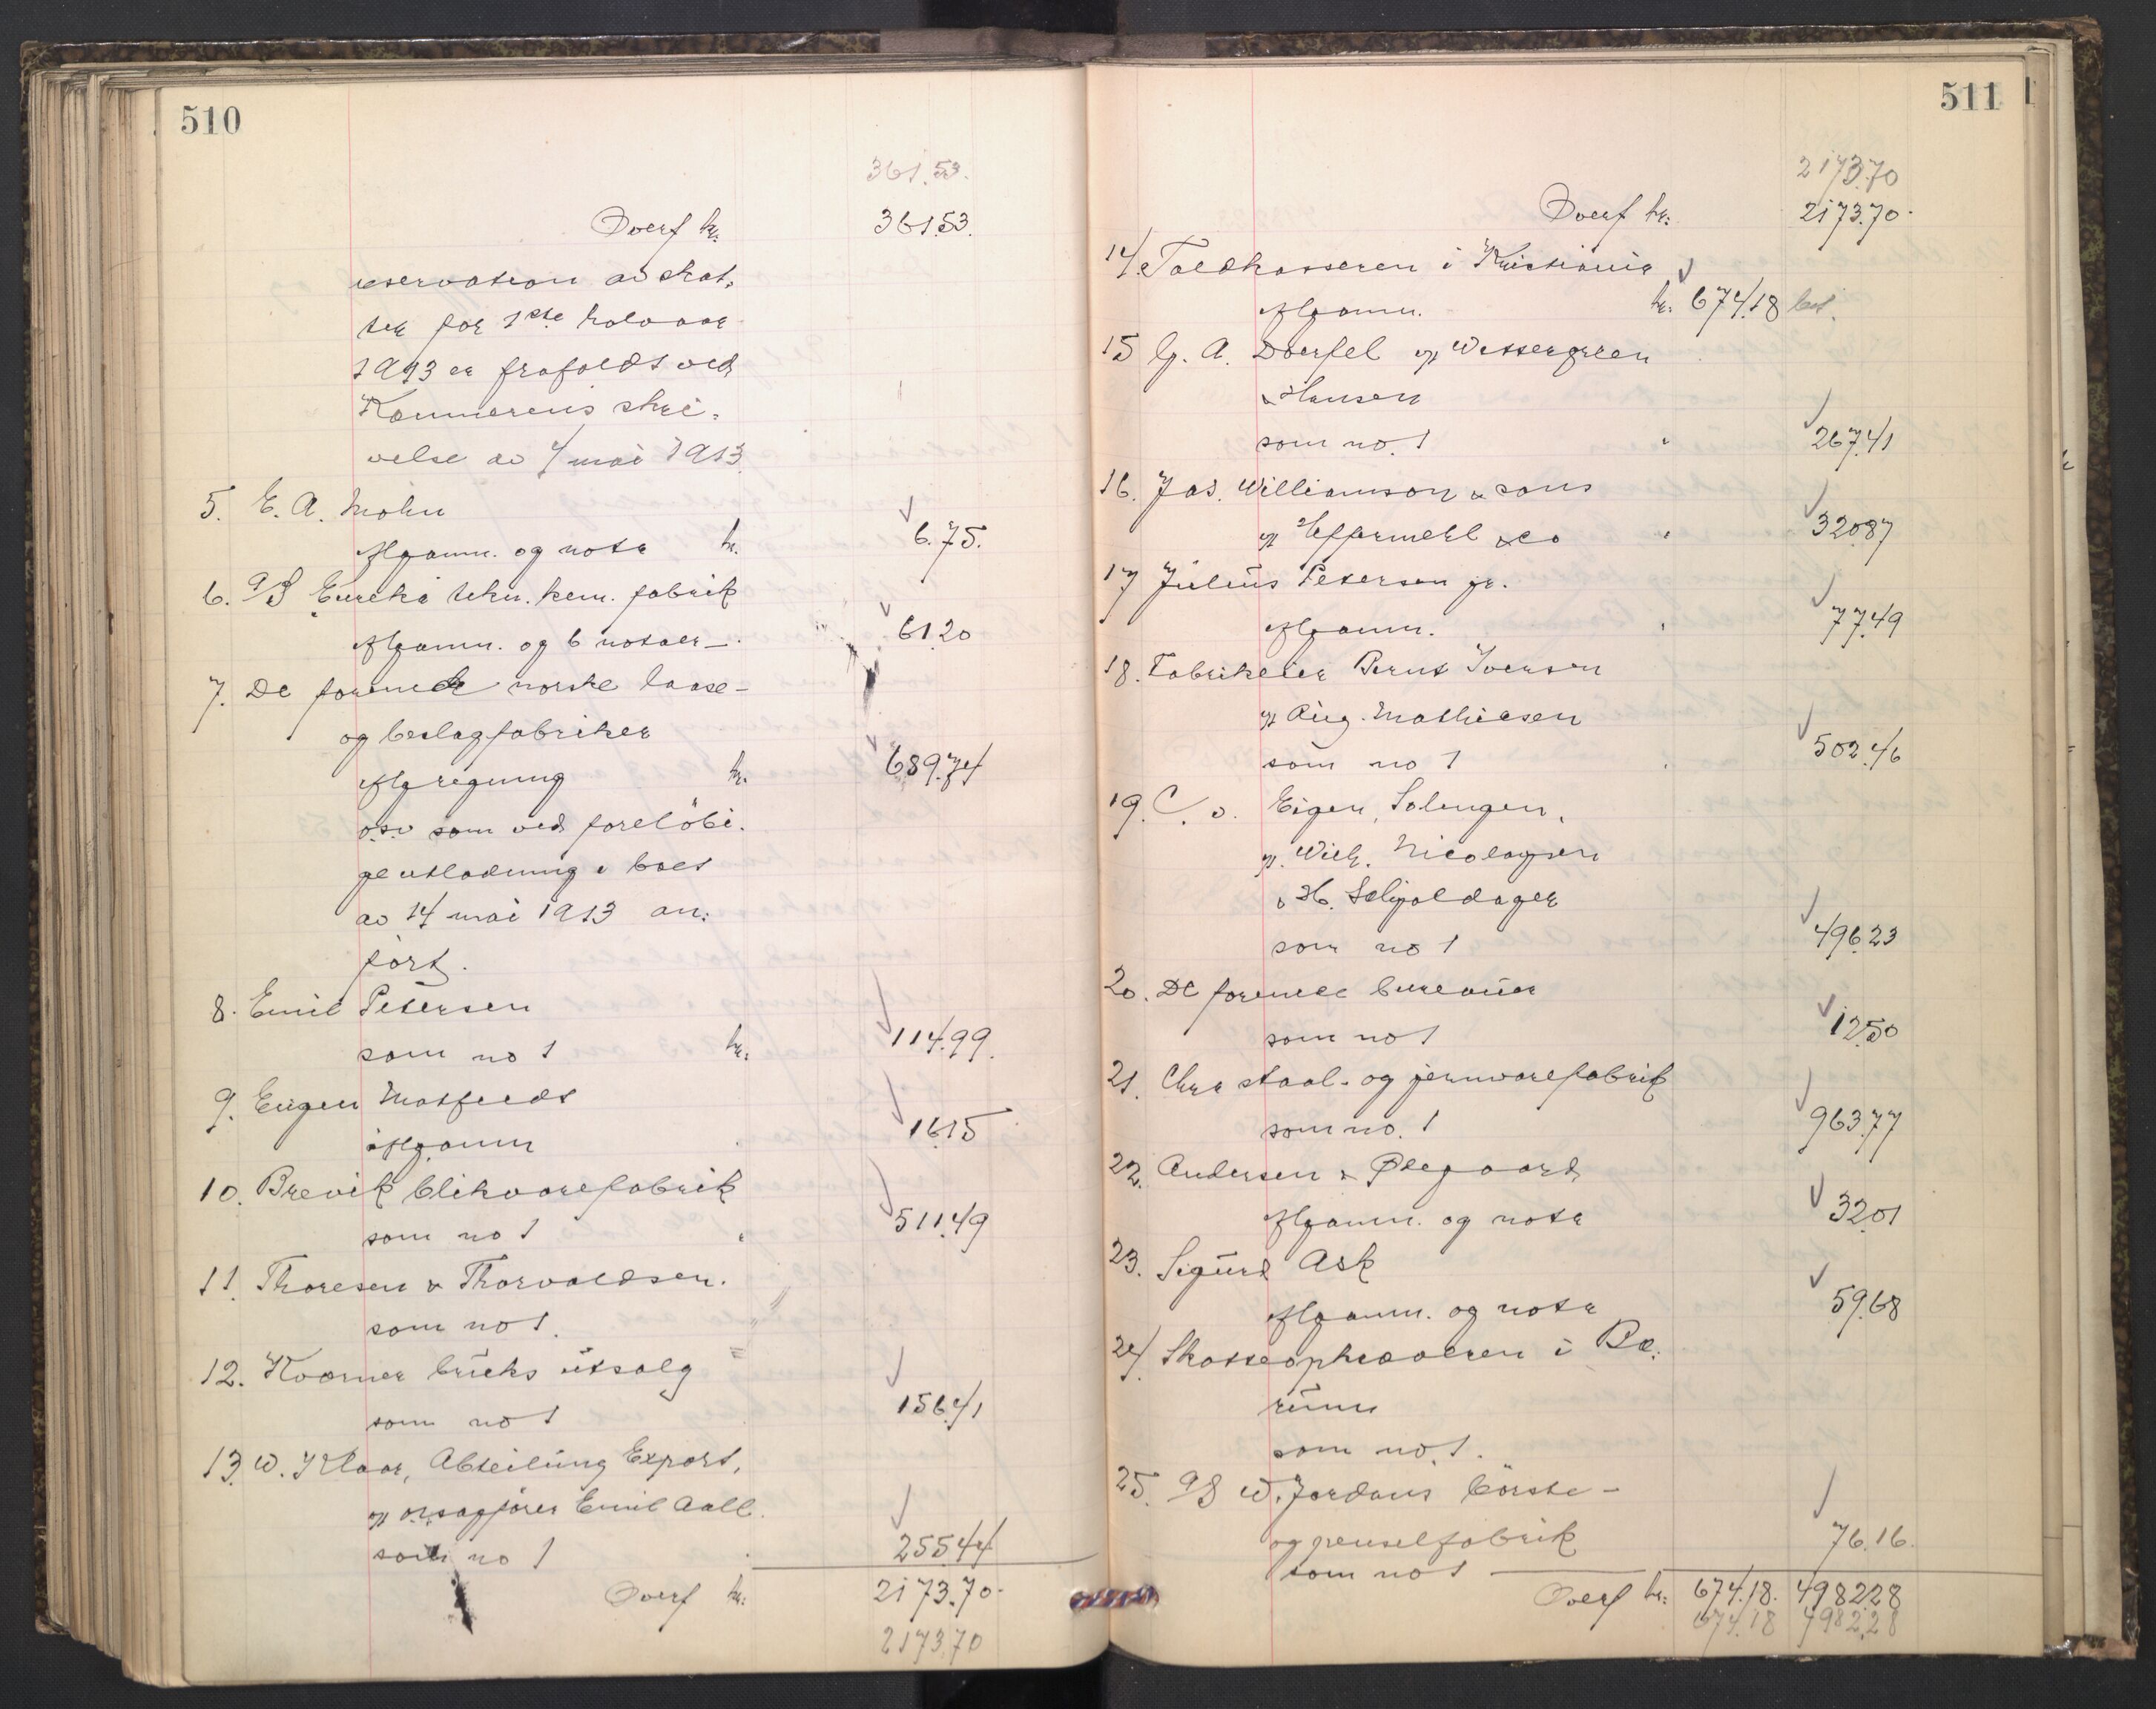 510
361.53.
Overf kr. 361.53.
reservation av skat-
ter for 1ste halvaar
1913 er frafaldt ved
Kæmnerens skri-
velse av 4/mai 1913.
5. E. A. Mohn
Afganm. og nota kr. 6.75.
6. A/S Eureka tekn. kem. fabrik
Afganm. og 6 notaer — 61.20
7. De forenede norske laase-
og beslagfabriker
Afregning kr. 689.74
osv som ved foreløbi-
ge utlodning i boet
av 14 mai 1913 an-
ført.
8. Emil Petersen
som no 1 kr. 114.99.
9. Eugen Matfeldt
Afganm 16.15
10. Brevik blikvarefabrik
som no 1 " 511.49
11. Thoresen & Thorvaldsen.
som no 1. "
12. Kværner bruks utsalg =
som no 1 156.41
13. W. Klaar, Abteilung Export,
v/ o.r.sagfører Emil Aall.
som no 1 255.44
Overf kr. 2173.70-
2173.70
511
2173.70
Overf kr. 2173.70.
14. Toldkasseren i Kristiania
Afganm. kr. 674.18 bet.
15 G. A. Doerfel v/ Westergren
& Hansen
som no. 1 " 267.41
16. Jas. Williamson & Sons
v/ Heffermehl & co " 320.87
17 Julius Petersen jr.
Afganm. " 77.49
18. Fabrikeier Bernt Iversen
v/ Aug. Mathiesen
som no 1 " 502.46
19. C. v. Eigen, Solingen,
v/ Wilh. Nicolaysen
& H. Schjoldager
som no 1 496.23
20. De forenede bureauer
som no 1 12.50
21. Chra staal- og jernvarefabrik
som no. 1 963.77
22. Andersen & Ødegaard
Afganm. og nota 32.01
23. Sigurd Ask
Afganm. og nota 59.68
24. Skatteopkræveren i Bæ-
rum
som no. 1.
25. A/S W. Jordans børste-
og penselfabrik 76.16.
som no 1
Overf kr. 674.18. 4982.28
674.18 4982.28